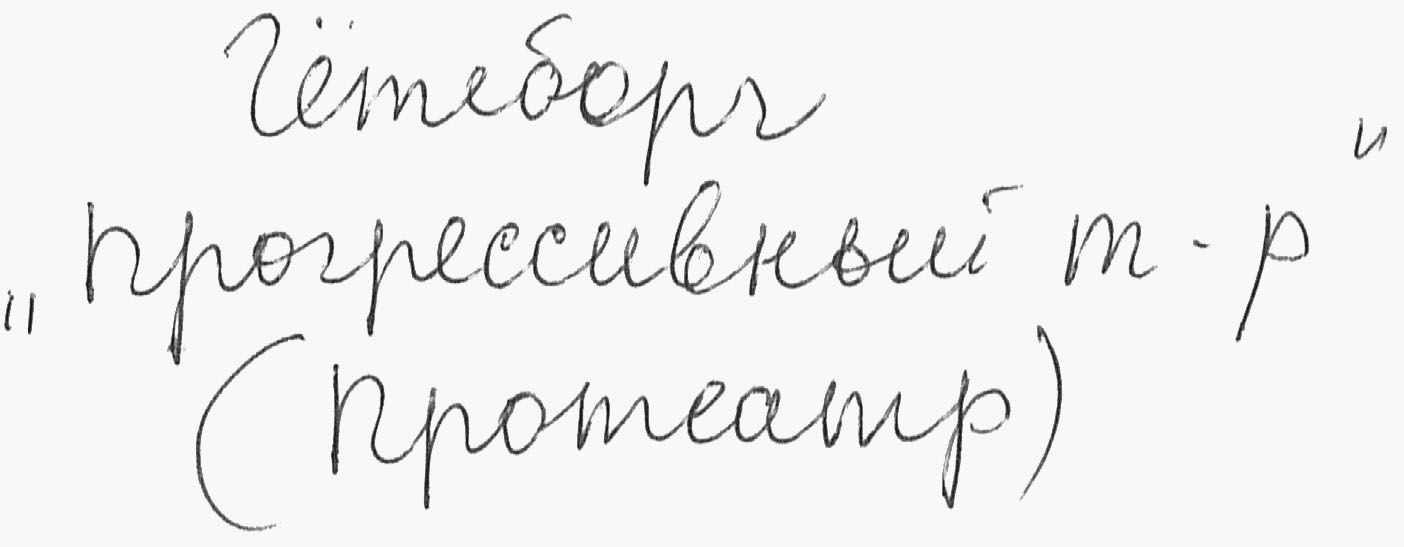 Гётеборг
„прогрессивный т-р"
(протеатр)